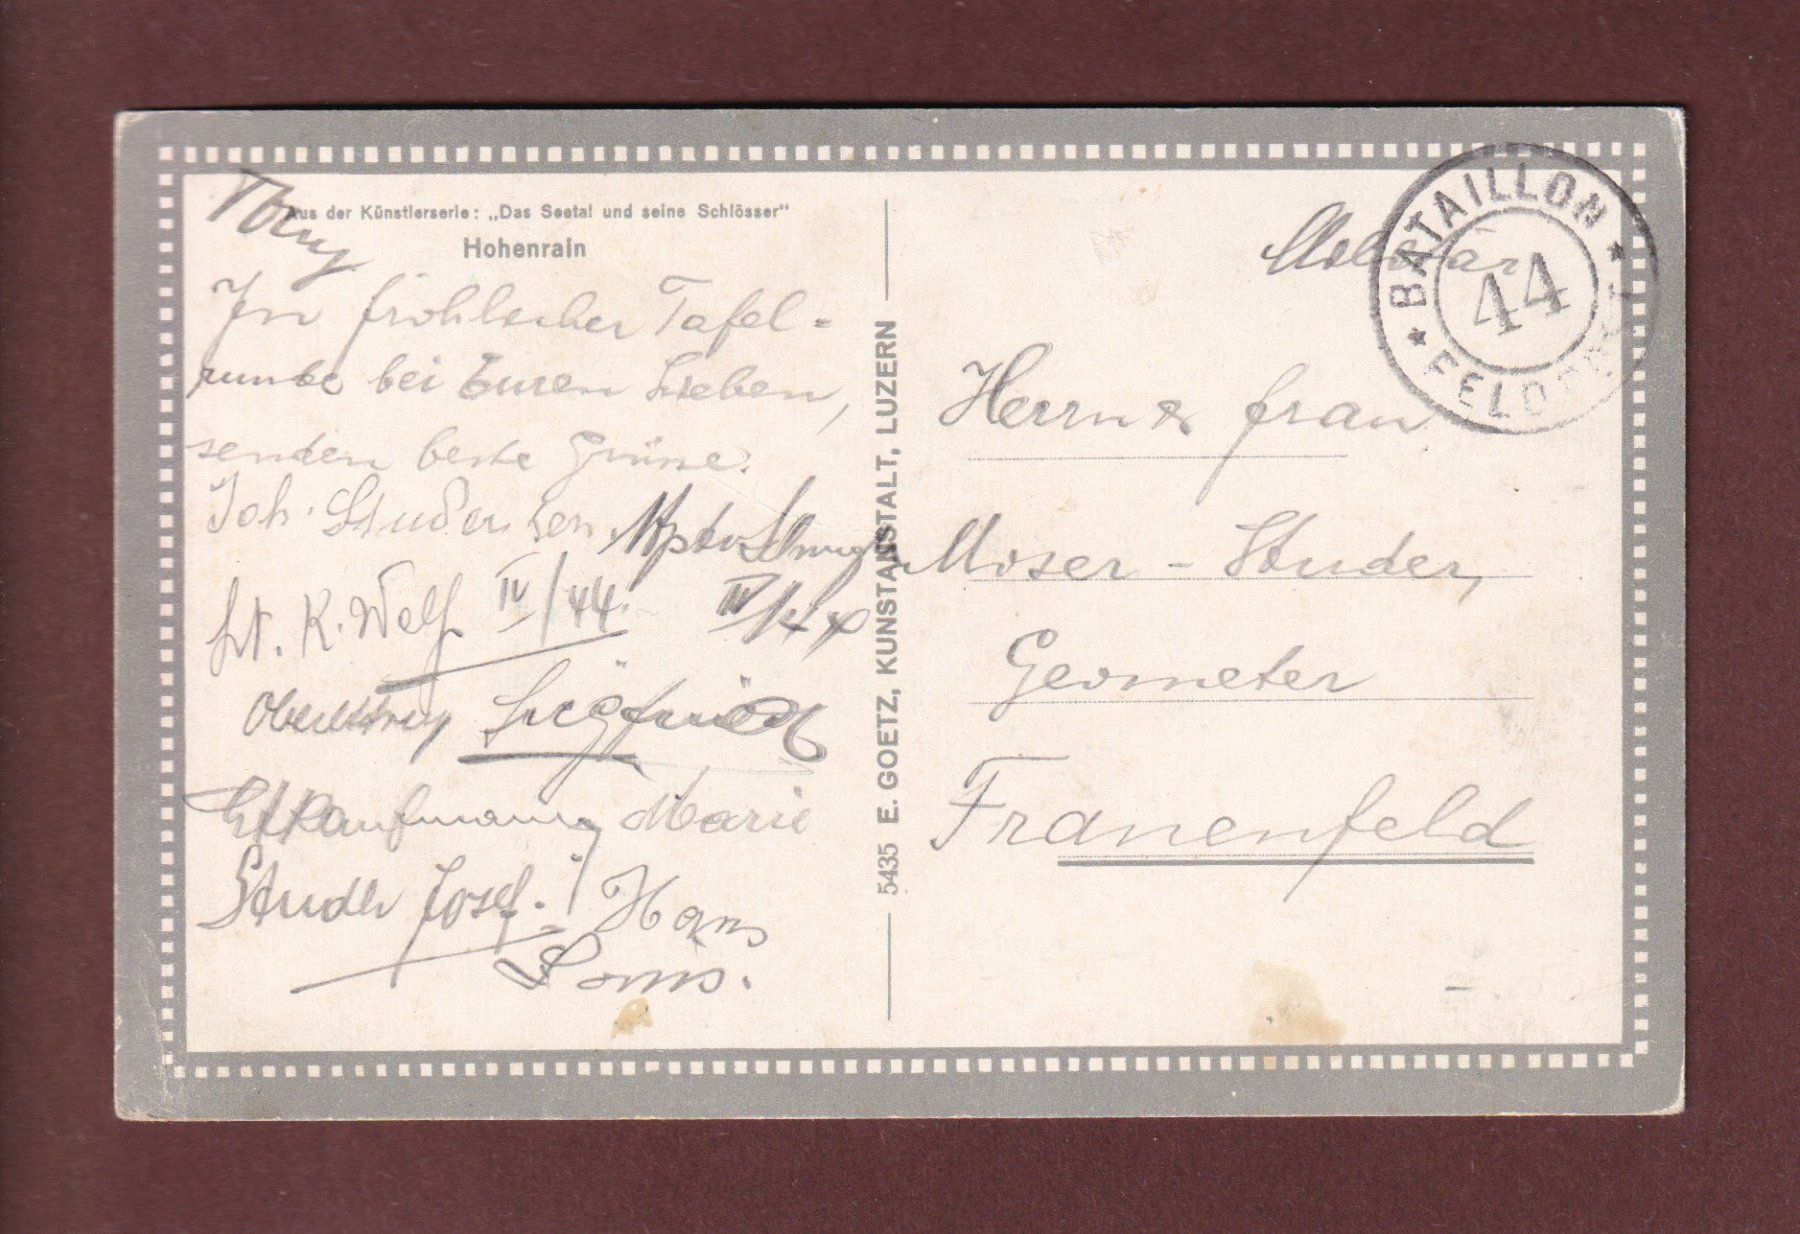 Aus der Künstlerserie: „Das Seetal und seine Schlösser"
Hohenrain
In fröhlicher Tafel=
runde bei Euren Lieben,
senden beste Grüsse.
Joh. Studer sen.
Lt. K. Welf IV/44.
Siegfried
Kaufmann Marie
Studer Josef. Hans
Louis.
5435 E. GOETZ, KUNSTANSTALT, LUZERN
Militär
★ BATAILLON ★ FELDPOST
44
Herrn & Frau
Moser-Studer,
Geometer
Frauenfeld